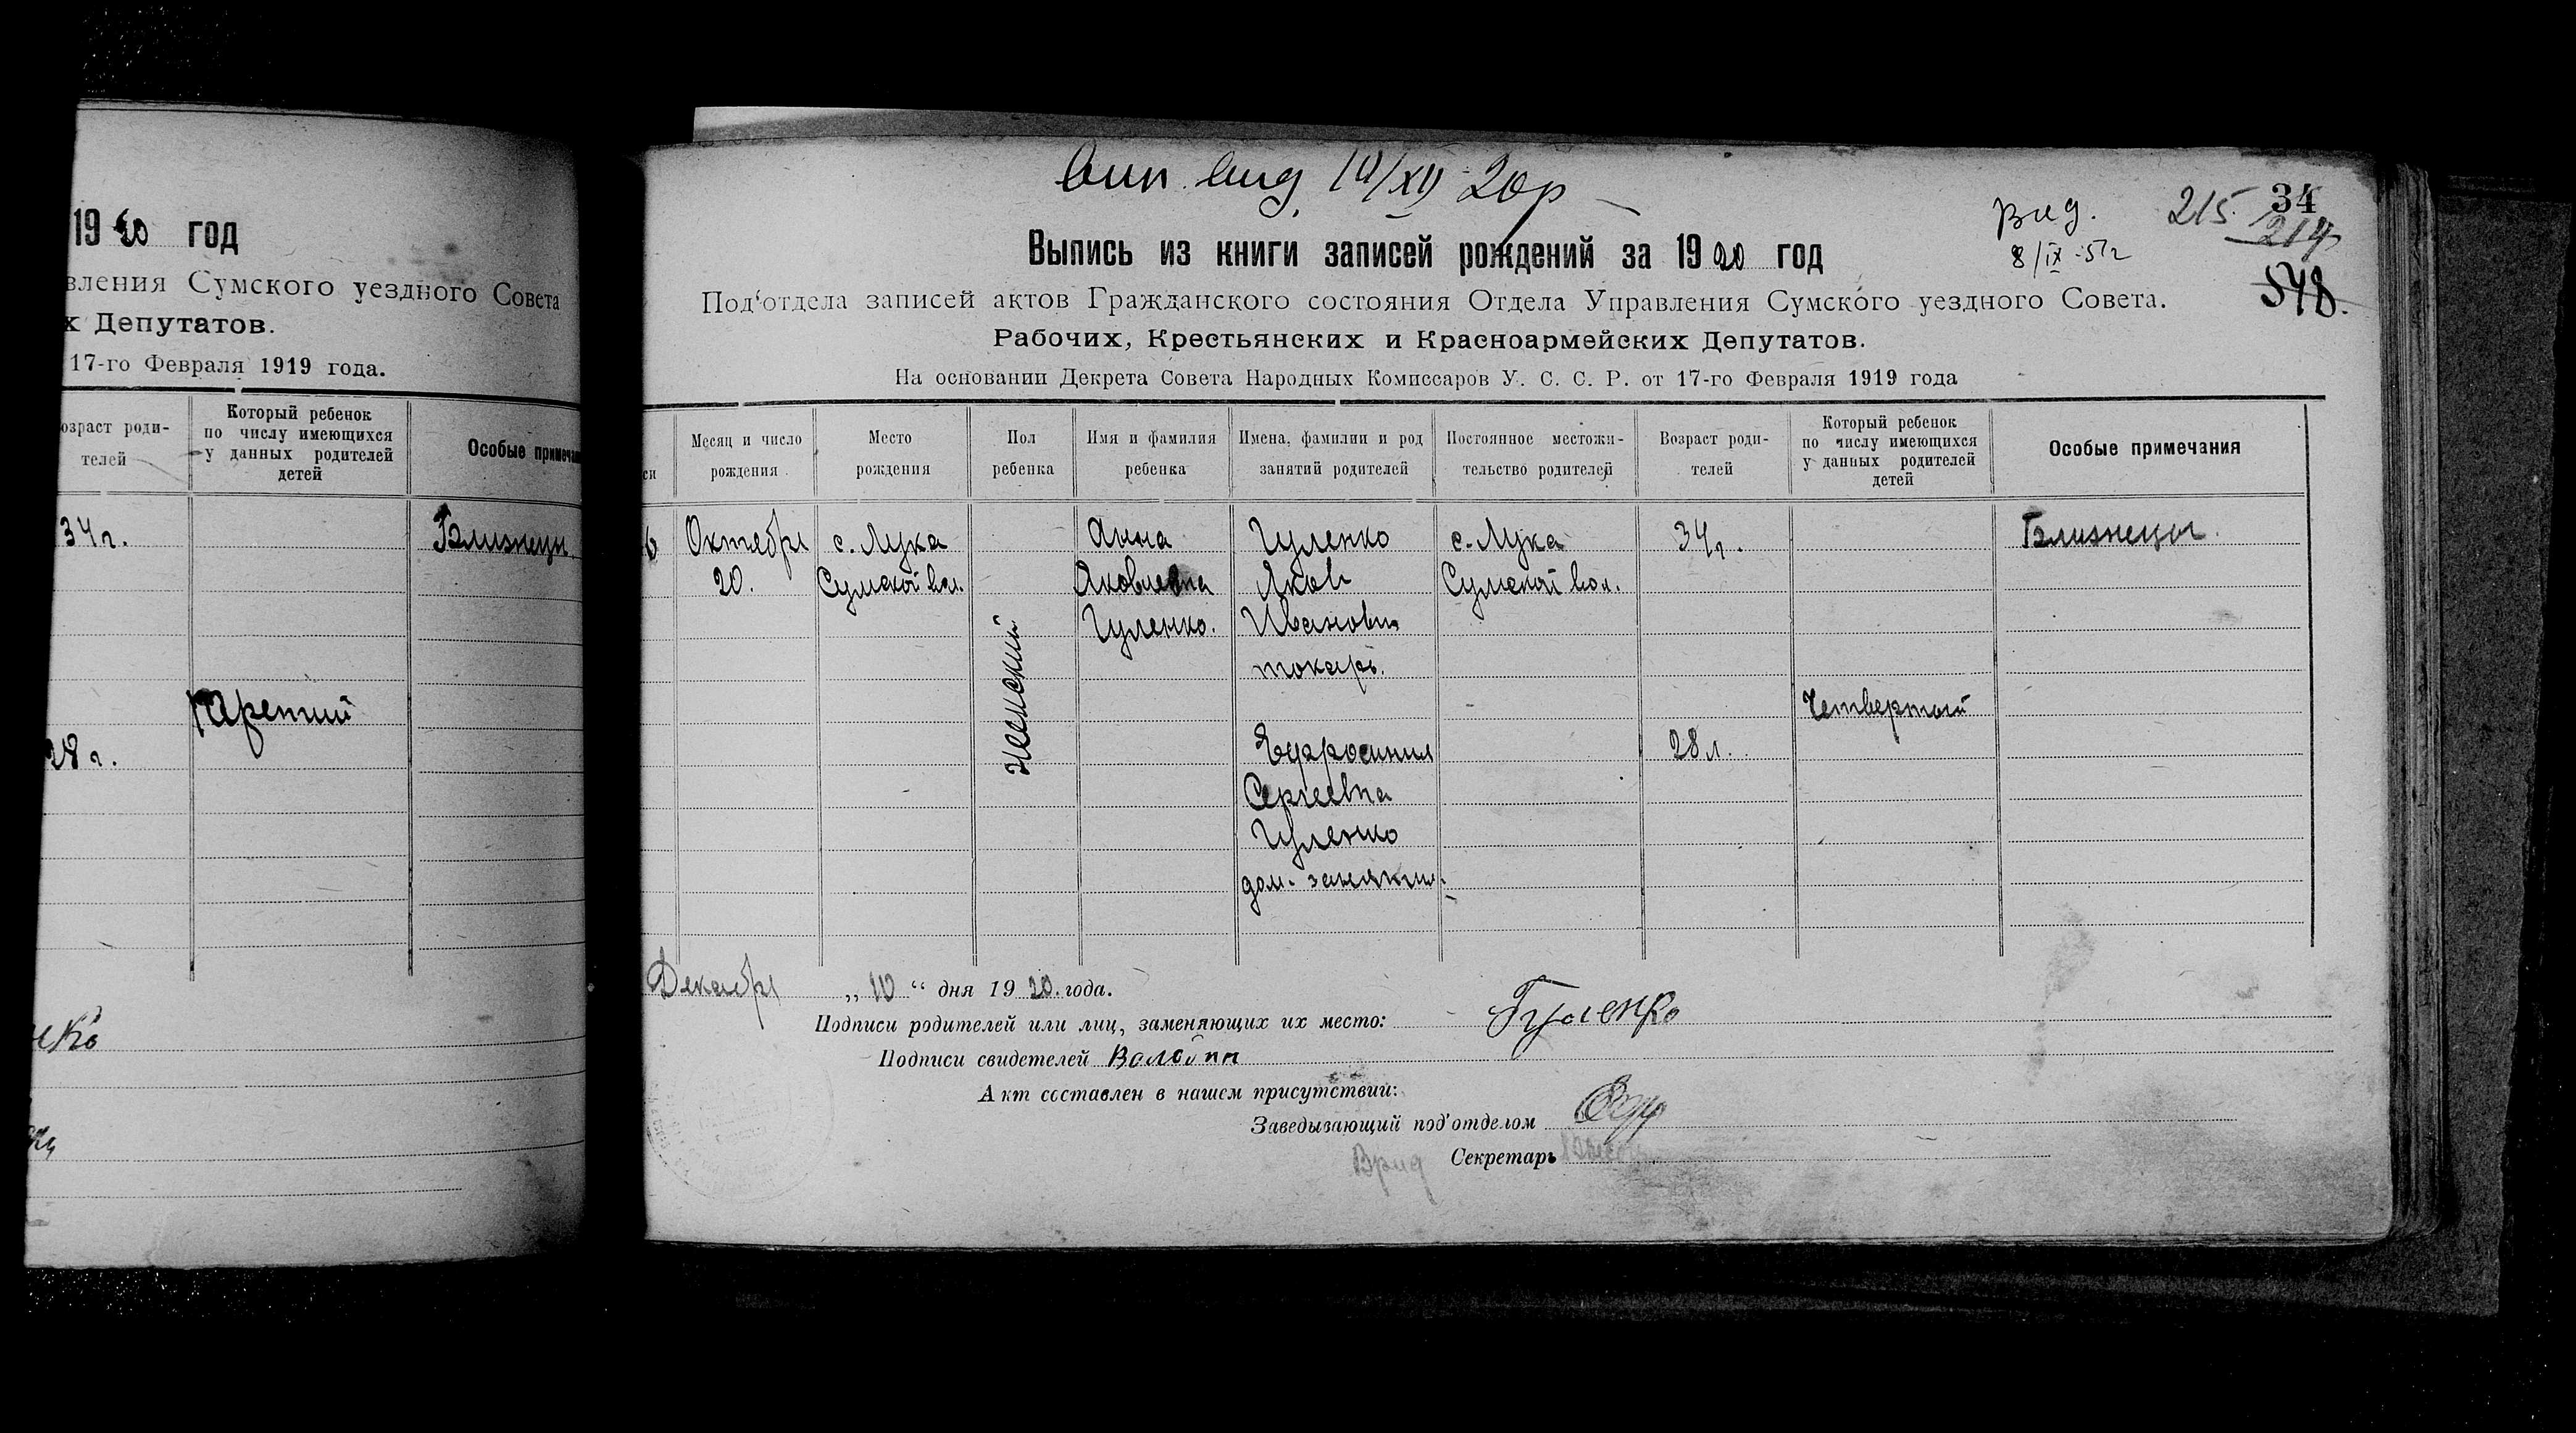 1920 год
вления Сумского уездного Совета
х Депутатов.
17-го Февраля 1919 года.
озраст роди-
телей
Который ребенок
по числу имеющихся
у данных родителей
детей
Особые примеча
34 г.
Близнецы.
Третий
28 г.
нко
вип. вид. 10/XII 20р
Вид.
8/IX-51г
215.
34
214
548.
Выпись из книги записей рождений за 1920 год
Под'отдела записей актов Гражданского состояния Отдела Управления Сумского уездного Совета.
Рабочих, Крестьянских и Красноармейских Депутатов.
На основании Декрета Совета Народных Комиссаров У. С. С. Р. от 17-го Февраля 1919 года
си
Месяц и число
рождения
Место
рождения
Пол
ребенка
Имя и фамилия
ребенка
Имена, фамилии и род
занятий родителей
Постоянное местожи-
тельство родителей
Возраст роди-
телей
Который ребенок
по числу имеющихся
у данных родителей
детей
Особые примечания
6
Октября
20.
с. Лука
Сумской вол.
женский
Анна
Яковлевна
Гуленко.
Гуленко
Яков
Иванович
токарь.
Ефросиния
Сергеевна
Гуленко
дом. занятия.
с. Лука
Сумской вол.
34 г.
28 л.
Четвертый
Близнецы.
Декабря „10“ дня 1920 года.
Подписи родителей или лиц, заменяющих их место: Гуленко
Подписи свидетелей
Акт составлен в нашем присутствии:
Заведывающий под'отделом
Врид Секретарь